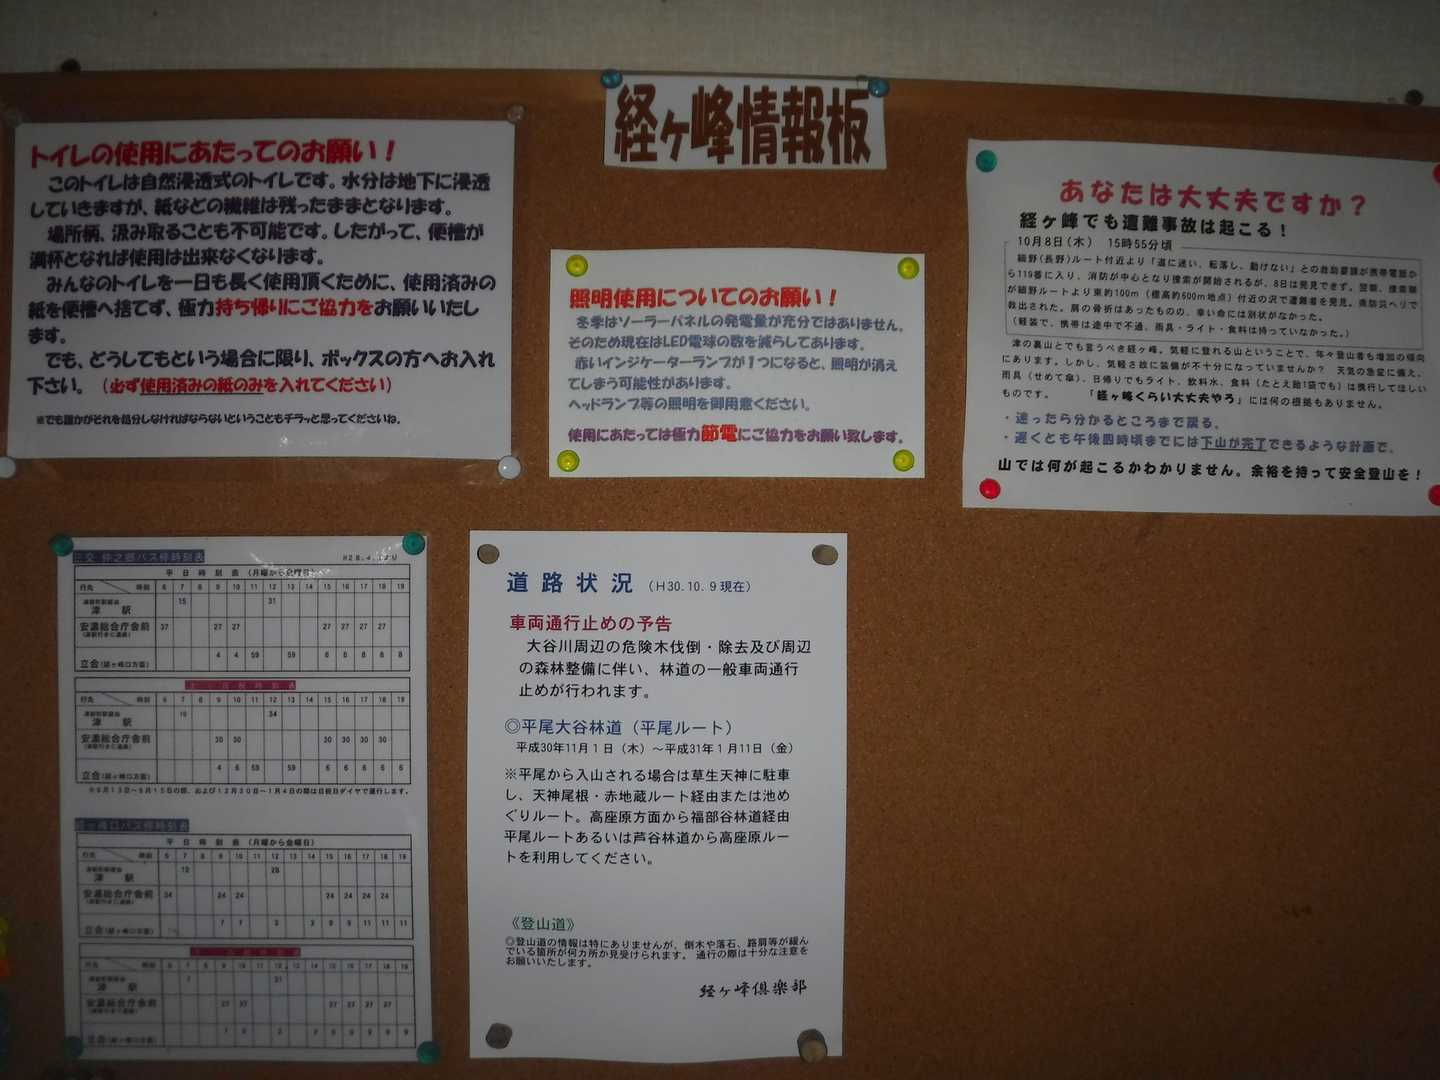 経ヶ峰情報板
トイレの使用にあたってのお願い！
このトイレは自然浸透式のトイレです。水分は地下に浸透
していきますが、紙などの繊維は残ったままとなります。
場所柄、汲み取ることも不可能です。したがって、便槽が
満杯となれば使用は出来なくなります。
みんなのトイレを一日も長く使用頂くために、使用済みの
紙を便槽へ捨てず、極力持ち帰りにご協力をお願いいたし
ます。
でも、どうしてもという場合に限り、ボックスの方へお入れ
下さい。（必ず使用済みの紙のみを入れてください）
※でも誰かがそれを処分しなければならないということもチラッと思ってくださいね。
照明使用についてのお願い！
冬季はソーラーパネルの発電量が充分ではありません。
そのため現在はLED電球の数を減らしてあります。
赤いインジケーターランプが１つになると、照明が消え
てしまう可能性があります。
ヘッドランプ等の照明を御用意ください。
使用にあたっては極力節電にご協力をお願い致します。
あなたは大丈夫ですか？
経ヶ峰でも遭難事故は起こる！
10月8日(木) 15時55分頃
細野(長野)ルート付近より「道に迷い、転落し、動けない」との救助要請が携帯電話か
ら119番に入り、消防が中心となり捜索が開始されるが、8日は発見できず。翌朝、捜索隊
が細野ルートより東約100m（標高約600m地点）付近の沢で遭難者を発見。県防災ヘリで
救出された。肩の骨折はあったものの、幸い命には別状がなかった。
（軽装で、携帯は途中で不通、雨具・ライト・食料は持っていなかった。）
津の裏山とでも言うべき経ヶ峰。気軽に登れる山ということで、年々登山者も増加の傾向
にあります。しかし、気軽さ故に装備が不十分になっていませんか？ 天気の急変に備え、
雨具（せめて傘）、日帰りでもライト、飲料水、食料（たとえ飴1袋でも）は携行してほしい
ものです。 「経ヶ峰くらい大丈夫やろ」には何の根拠もありません。
・迷ったら分かるところまで戻る。
・遅くとも午後四時頃までには下山が完了できるような計画で。
山では何が起こるかわかりません。余裕を持って安全登山を！
三交 仲之郷バス停時刻表
平日時刻表（月曜から金曜日）
行先 時刻 6 7 8 9 10 11 12 13 14 15 16 17 18 19
津駅 15 31
安濃総合庁舎前 37 27 27 27 27 27 27
立合(経ヶ峰口方面) 4 4 59 59 6 6 6 8 8
土・日祝時刻表
行先 時刻 6 7 8 9 10 11 12 13 14 15 16 17 18 19
津駅 34
安濃総合庁舎前 30 30 30 30 30 30
立合(経ヶ峰口方面) 4 6 59 59 6 6 6 6 6
経ヶ峰口バス停時刻表
平日時刻表（月曜から金曜日）
行先 時刻 6 7 8 9 10 11 12 13 14 15 16 17 18 19
津駅 12 28
安濃総合庁舎前 34 24 24 24 24 24 24
立合 7 7 9 9 11 11 11
行先 時刻 6 7 8 9 10 11 12 13 14 15 16 17 18 19
津駅 7 31
安濃総合庁舎前 27 27 27 27 27
道路状況（H30.10.9現在）
車両通行止めの予告
大谷川周辺の危険木伐倒・除去及び周辺
の森林整備に伴い、林道の一般車両通行
止めが行われます。
◎平尾大谷林道（平尾ルート）
平成30年11月1日（木）～平成31年1月11日（金）
※平尾から入山される場合は草生天神に駐車
し、天神尾根・赤地蔵ルート経由または池め
ぐりルート。高座原方面から福部谷林道経由
平尾ルートあるいは芦谷林道から高座原ルー
トを利用してください。
《登山道》
◎登山道の情報は特にありませんが、倒木や落石、路肩等が緩ん
でいる箇所が何カ所か見受けられます。通行の際は十分な注意を
お願いいたします。
経ヶ峰倶楽部